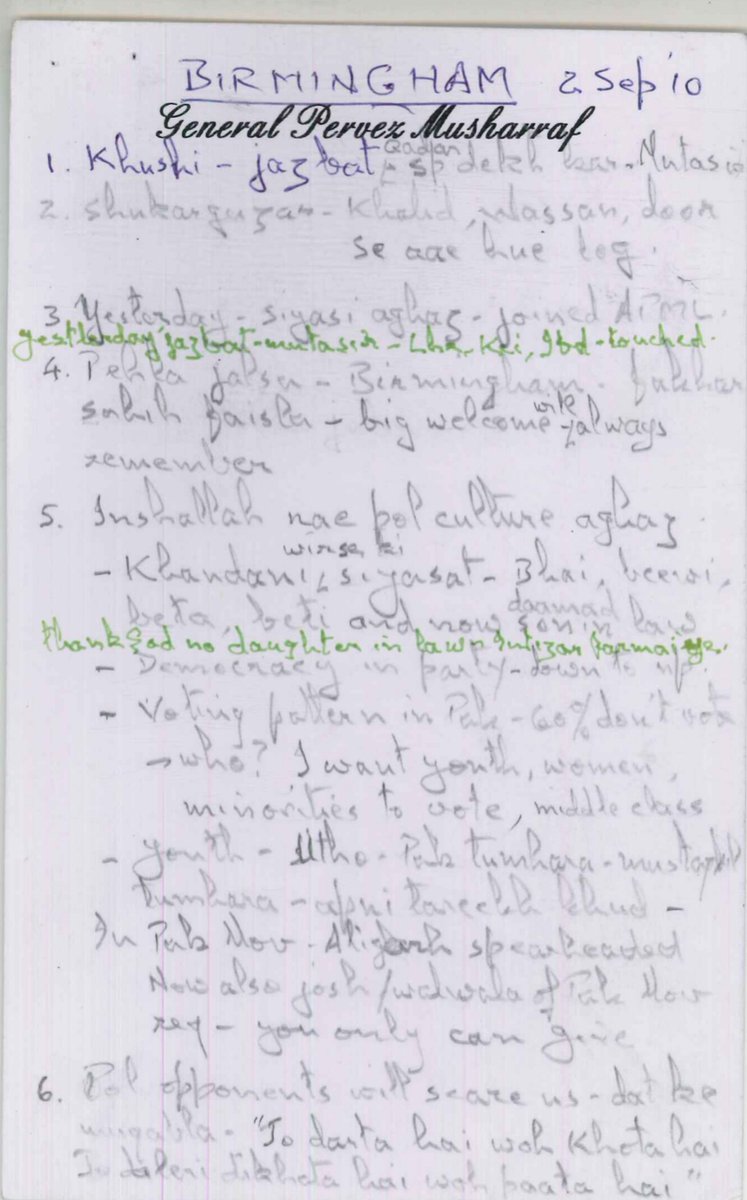 BIRMINGHAM 2 Sep '10
General Pervez Musharraf
1. Khushi - jazbat - sp dekh kar - Mutasir
2. Shukarguzar - Khalid, Hassan, door
se aae hue log.
3. Yesterday - siyasi aghaz - joined APML.
yesterday jazbat - mutasir - Lhr, Kci, Ibd - touched.
4. Pehla jalsa - Birmingham. fakhar
sahih faisla - big welcome - will always
remember
5. Inshallah nae pol culture aghaz.
wirse ki
- Khandani, siyasat - Bhai, beewi,
daamad
beta, beti and now son in law
thank God no daughter in law - Intizar farmaiye.
- Democracy in party - down to up.
- Voting pattern in Pak - 60% don't vote
→ who? I want youth, women,
minorities to vote, middle class
- Youth - Utho - Pak tumhara - mustaqbil
tumhara - apni tareekh khud -
In Pak Mov - Aligarh spearheaded
Now also josh/walwala of Pak Mov
req - you only can give
6. Pol opponents will scare us - dat ke
muqabla - "Jo darta hai woh khota hai
Jo daleri dikhata hai woh paata hai"